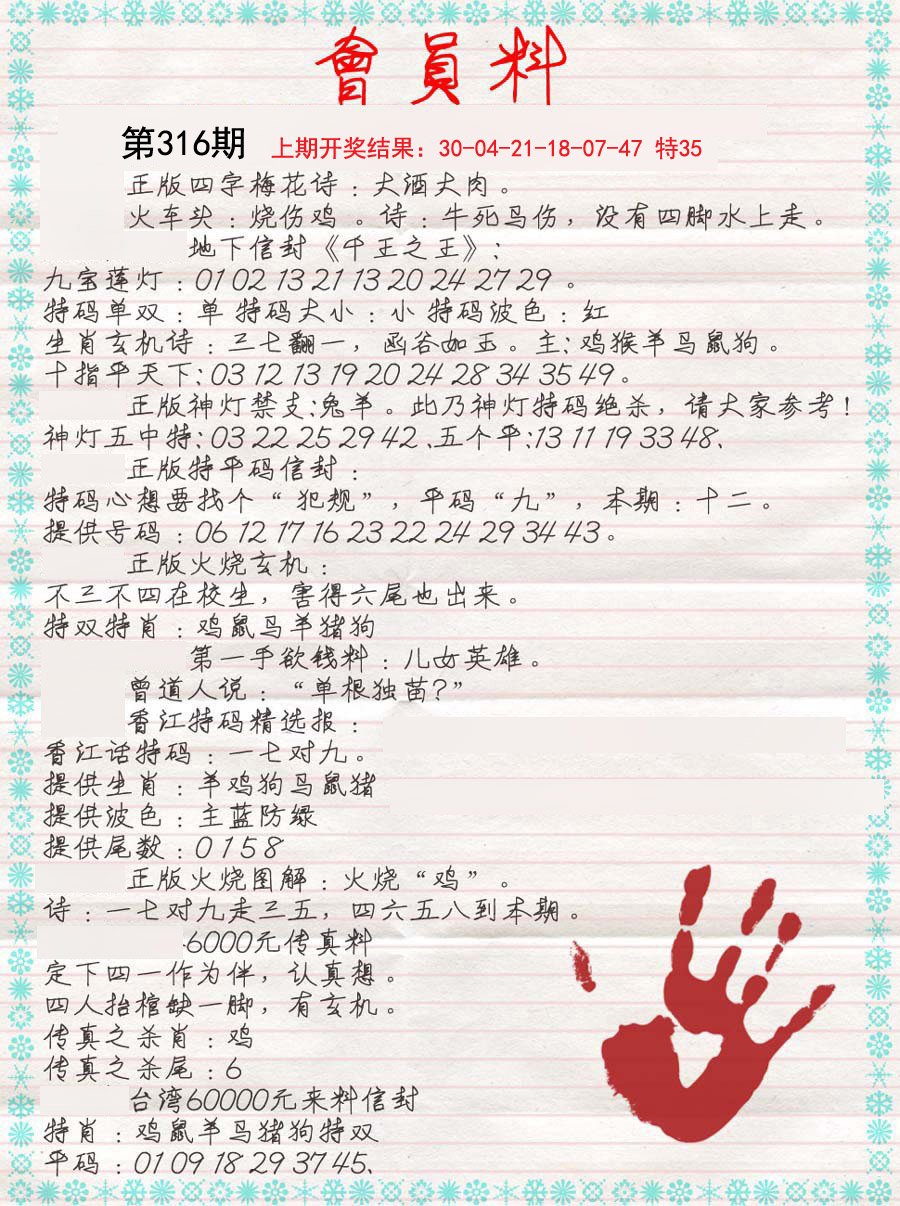 會員料
第316期 上期开奖结果：30-04-21-18-07-47 特35
正版四字梅花诗：大酒大肉。
火车头：烧伤鸡。诗：牛死鸟伤，没有四脚水上走。
地下信封《千王之王》：
九宝莲灯：01 02 13 21 13 20 24 27 29 。
特码单双：单 特码大小：小 特码波色：红
生肖玄机诗：三七翻一，函谷如玉。主：鸡猴羊马鼠狗。
十指平天下：03 12 13 19 20 24 28 34 35 49。
正版神灯禁支：兔羊。此乃神灯特码绝杀，请大家参考！
神灯五中特：03 22 25 29 42、五个平：13 11 19 33 48、
正版特平码信封：
特码心想要找个“犯规”，平码“九”，本期：十二。
提供号码：06 12 17 16 23 22 24 29 34 43。
正版火烧玄机：
不三不四在校生，害得六尾也出来。
特双特肖：鸡鼠马羊猪狗
第一手欲钱料：儿女英雄。
曾道人说：“单根独苗？”
香江特码精选报：
香江话特码：一七对九。
提供生肖：羊鸡狗马鼠猪
提供波色：主蓝防绿
提供尾数：0 1 5 8
正版火烧图解：火烧“鸡”。
诗：一七对九走三五，四六五八到本期。
6000元传真料
定下四一作为伴，认真想。
四人抬棺缺一脚，有玄机。
传真之杀肖：鸡
传真之杀尾：6
台湾60000元来料信封
特肖：鸡鼠羊马猪狗特双
平码：01 09 18 29 37 45、